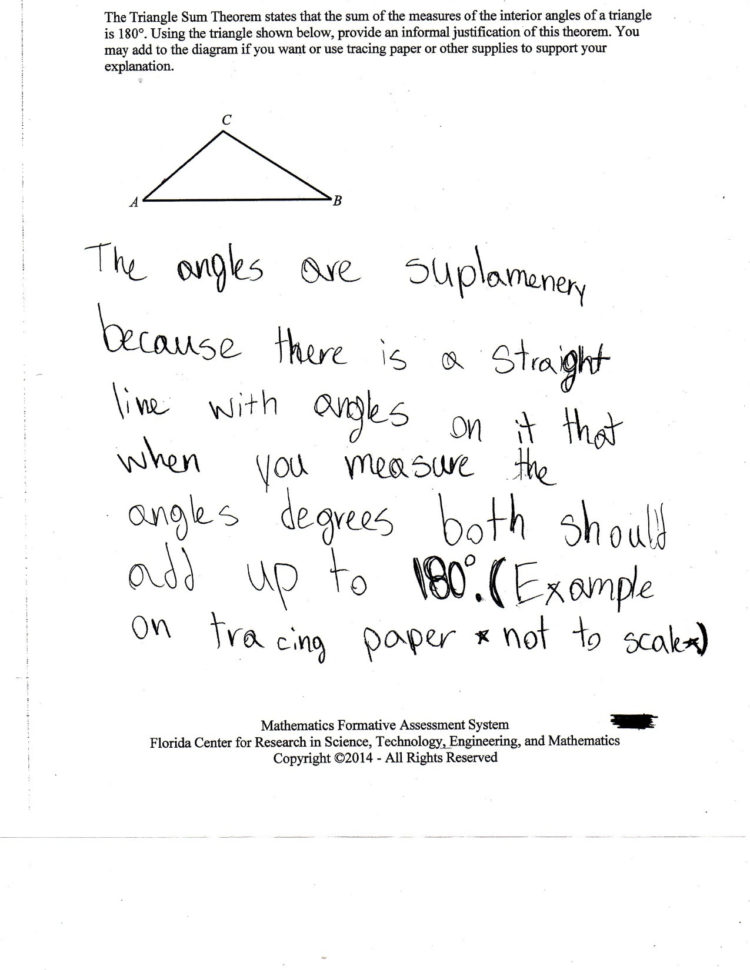 The Triangle Sum Theorem states that the sum of the measures of the interior angles of a triangle
is 180°. Using the triangle shown below, provide an informal justification of this theorem. You
may add to the diagram if you want or use tracing paper or other supplies to support your
explanation.
C
A
B
The angles are suplamenery
because there is a straight
line with angles on it that
when you measure the
angles degrees both should
add up to 180°. (Example
on tracing paper * not to scale*)
Mathematics Formative Assessment System
Florida Center for Research in Science, Technology, Engineering, and Mathematics
Copyright ©2014 - All Rights Reserved